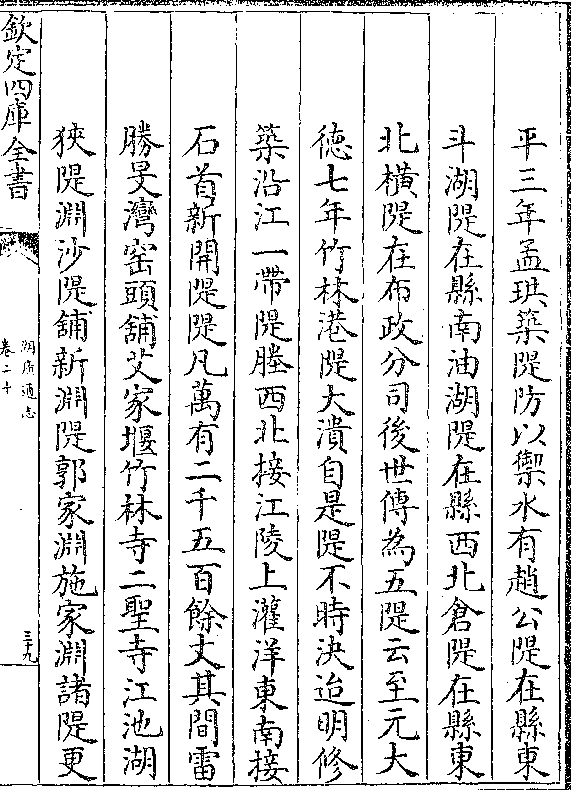 平三年孟珙築隄防以禦水有趙公隄在縣東
斗湖隄在縣南油湖隄在縣西北倉隄在縣東
北横隄在布政分司後世傳為五隄云至元大
徳七年竹林港隄大潰自是隄不時決迨明修
築沿江一帶隄塍西北接江陵上灌洋東南接
石首新開隄隄凡萬有二千五百餘丈其間雷
勝旻灣窑頭舖艾家堰竹林寺二聖寺江池湖
狹隄淵沙隄舖新淵隄郭家淵施家淵諸隄更
欽定四庫全書
湖廣通志
卷二十
三十九